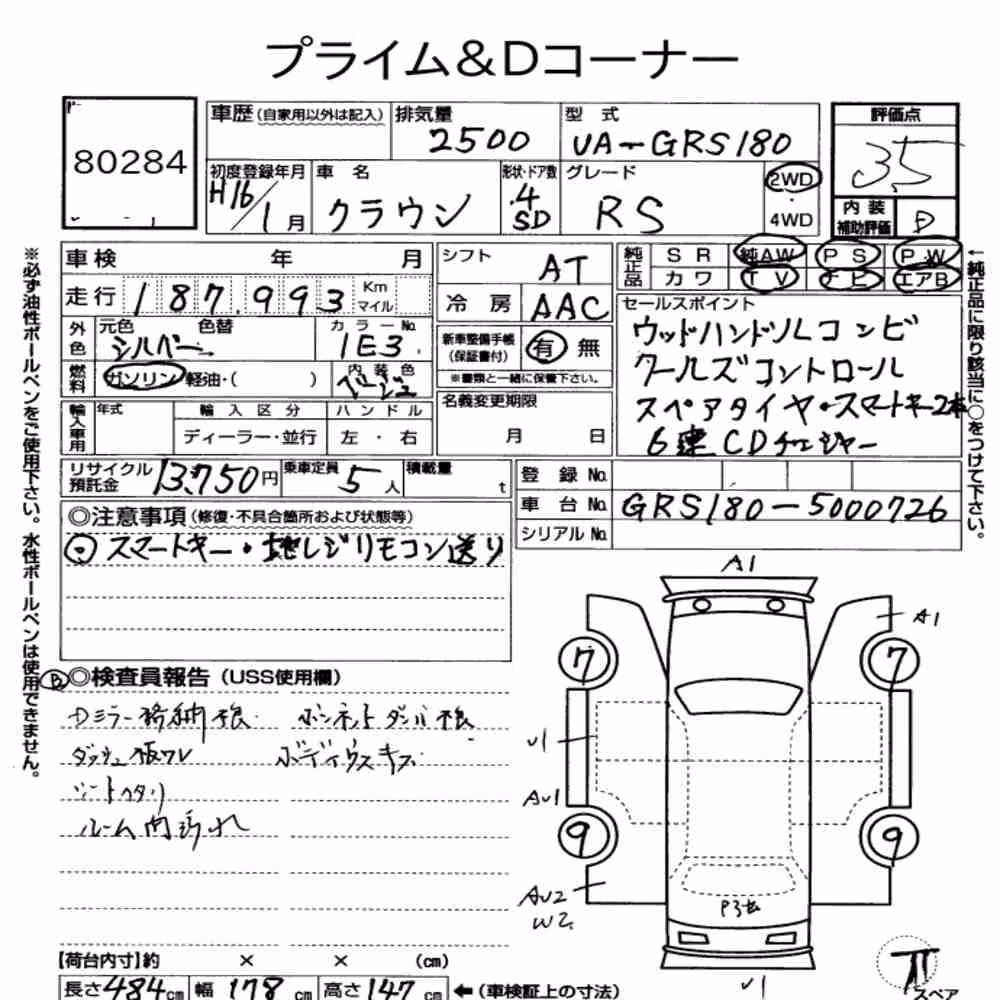 プライム&Dコーナー
80284
車歴(自家用以外は記入) 排気量 2500 型式 UA-GRS180 評価点 3.5
初度登録年月 H16/1月 車名 クラウン 形状・ドア数 4 SD グレード RS 2WD 4WD 内装補助評価 D
車検 年 月 シフト AT 純正品 SR 純AW PS PW
走行 187.993 Km マイル 冷房 AAC カワ TV ナビ エアB
外色 元色 シルバー 色替 カラーNo. 1E3 新車整備手帳(保証書付) 有 無
※書類と一緒に保管下さい。
燃料 ガソリン・軽油・( ) 内装色 ベージュ 名義変更期限 月 日
輸入車用 年式 輸入区分 ディーラー・並行 ハンドル 左・右
セールスポイント
ウッドハンドルコンビ
クールズコントロール
スペアタイヤ・スマートキー2本
6連CDチェンジャー
リサイクル預託金 13,750円 乗車定員 5人 積載量 t 登録No.
車台No. GRS180-5000726
シリアルNo.
◎注意事項(修復・不具合箇所および状態等)
スマートキー・地レジリモコン送り
B ◎検査員報告(USS使用欄)
Dミラー格納不良 ボンネットダンパ不良
ダッシュ板ワレ ボディウスキズ
シートヘタリ
ルーム内汚れ
A1
A1
7 7
U1
AU1
9 9
AU2
W2
U1
スペア
【荷台内寸】約 × × (cm)
長さ484cm 幅178cm 高さ147cm ←(車検証上の寸法)
※必ず油性ボールペンをご使用下さい。水性ボールペンは使用できません。
←純正品に限り該当に○をつけて下さい。